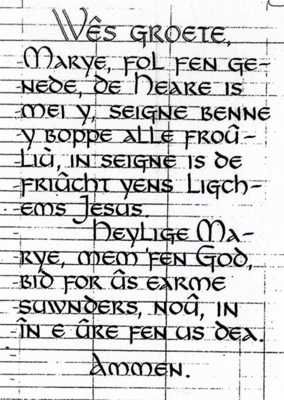 Wês groete,
Marye, fol fen ge-
nede, de Heare is
mei y, seigne benne
y boppe alle froû-
liù, in seigne is de
friûcht yens Ligch-
ems Jesus.
Heylige Ma-
rye, mem fen God,
bid for ûs earme
suwnders, noû, in
în e ûre fen us dea.
Ammen.